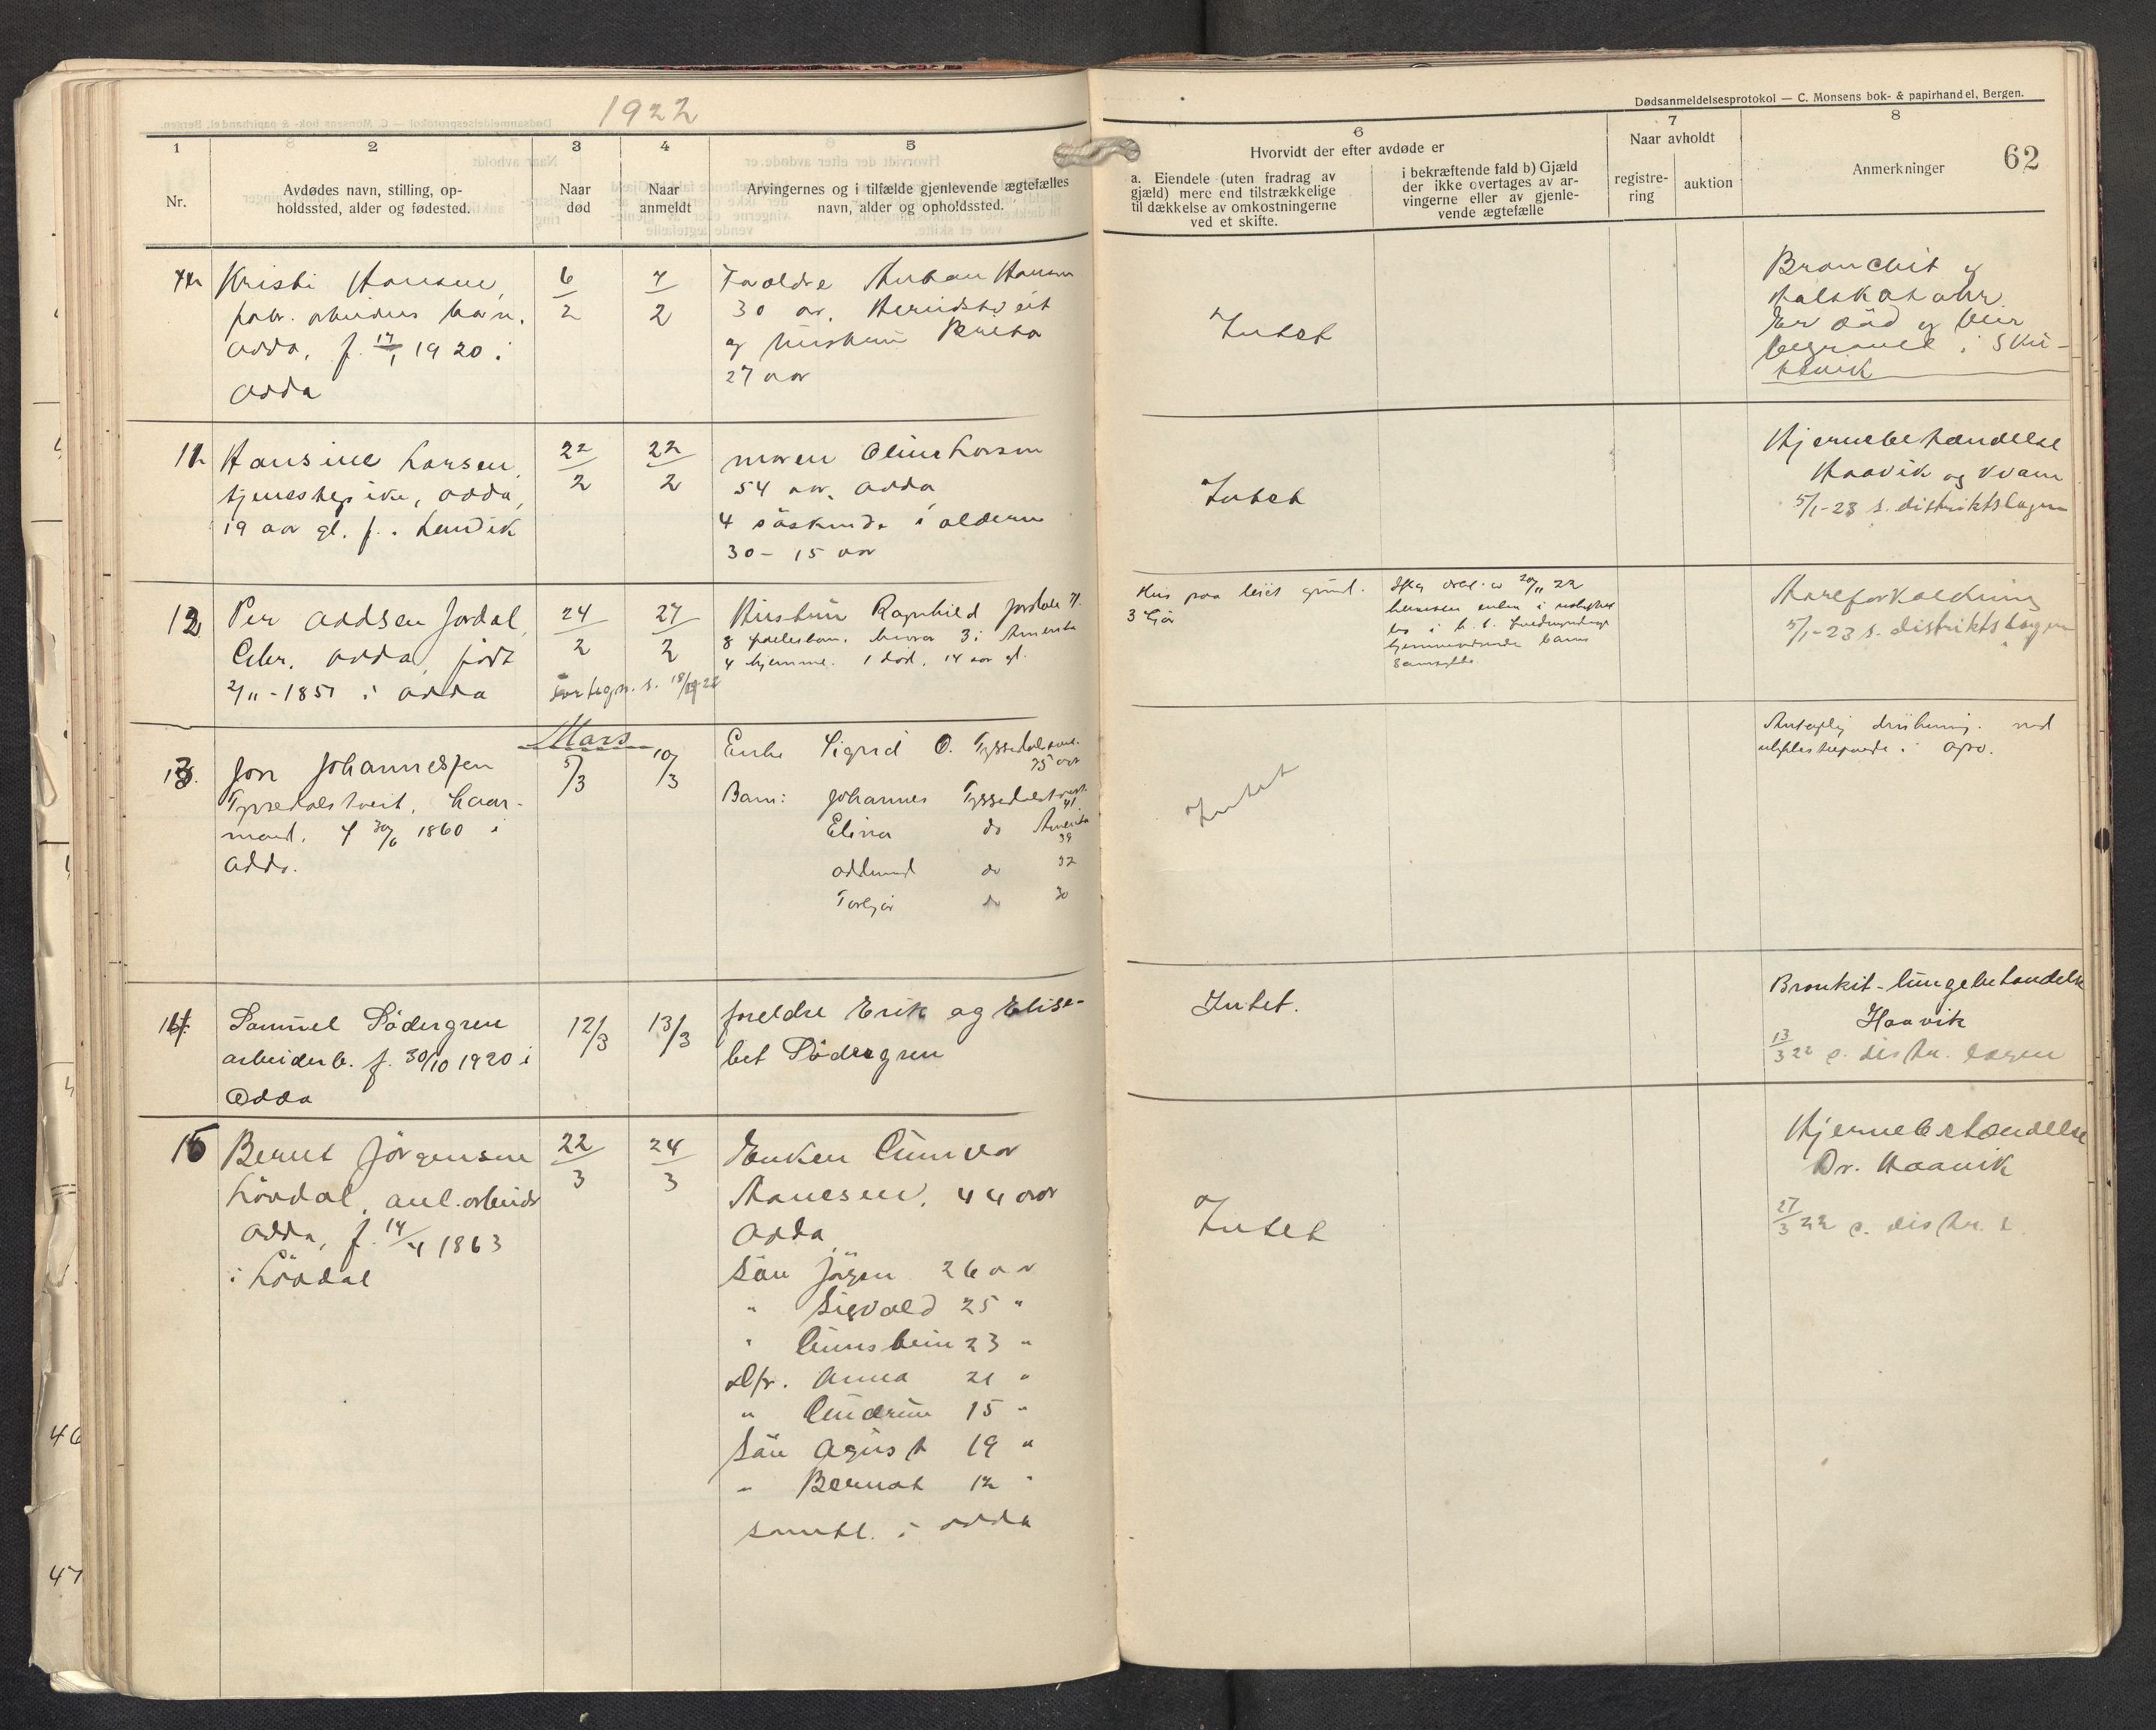 1922
Dødsanmeldelsesprotokol — C. Monsens bok- & papirhandel, Bergen.
62
1
Nr.
2
Avdødes navn, stilling, op-
holdssted, alder og fødested.
3
Naar
død
4
Naar
anmeldt
5
Arvingernes og i tilfælde gjenlevende ægtefælles
navn, alder og opholdssted.
6
Hvorvidt der efter avdøde er
a. Eiendele (uten fradrag av
gjæld) mere end tilstrækkelige
til dækkelse av omkostningerne
ved et skifte.
i bekræftende fald b) Gjæld
der ikke overtages av ar-
vingerne eller av gjenle-
vende ægtefælle
7
Naar avholdt
registre-
ring
auktion
8
Anmerkninger
Kristi Hansen,
fabr. arbeiders barn,
Odda, f. 17/1 1920 i
Odda
6/2
7/2
Forældre Hansen
30 ar,
og hustru Brita
27 aar
Intet
Bronchit og
Halskatahr.
Er død og blir
begravet i
11
Hansine Larsen,
tjenestepike, Odda,
19 aar gl. f. i
22/2
22/2
moren Oline Larsen
54 aar, Odda
4 søskende i alderen
30 - 15 aar
Intet
Hjernebetændelse
Haavik og Kvam
5/1-23 s. distriktslægen
12
Per Oddsen Jordal
Odda, født
2/11 - 1851 i Odda
24/2
27/2
s. 18/ 22
Hustru Ragnhild Jordal
8 fællesbarn, hvorav 3 i Amerika
4 hjemme. 1 død, 14 aar gl.
Hus paa leiet grund.
3 Kjør
22
enken i uskiftet
bo
hjemmeværende barns
samtykke
Aareforkalkning
5/1-23 s. distriktslægen
Mars
13.
Jon Johannessen
Tyssedalstveit,
f 30/6 1860 i
Odda.
5/3
10/3
Enke Sigrid O. Tyssedalstveit
75 aar
Barn: Johannes Tyssedalstveit
41
Elina do Amerika
39
Oddmund do 32
Torbjør do 30
Intet
Antagelig drukning. ved
ulykkeshændelse i Opo.
14.
Samuel Södergren
arbeiderb. f. 30/10 1920 i
Odda
12/3
13/3
foreldre Erik og Elisa-
bet Södergren
Intet.
Bronkit - lungebetændelse
Haavik
13/3 22 s. distr. lægen
15
Bernt Jörgensen
Lövdal, anl. arbeider
Odda, f. 14/4 1863
i Lövdal
22/3
24/3
Enken Gunvor
Hansen, 44 aar
Odda
Sön Jörgen 26 aar
" Sigvald 25 "
" Gunstein 23 "
Dtr. Anna 21 "
" Gudrun 15 "
Sön Agust 19 "
" Bernat 12 "
samtl. i Odda
Intet
Hjernebetændelse
Dr. Haavik
27/3 22 s. distr. l
46
47